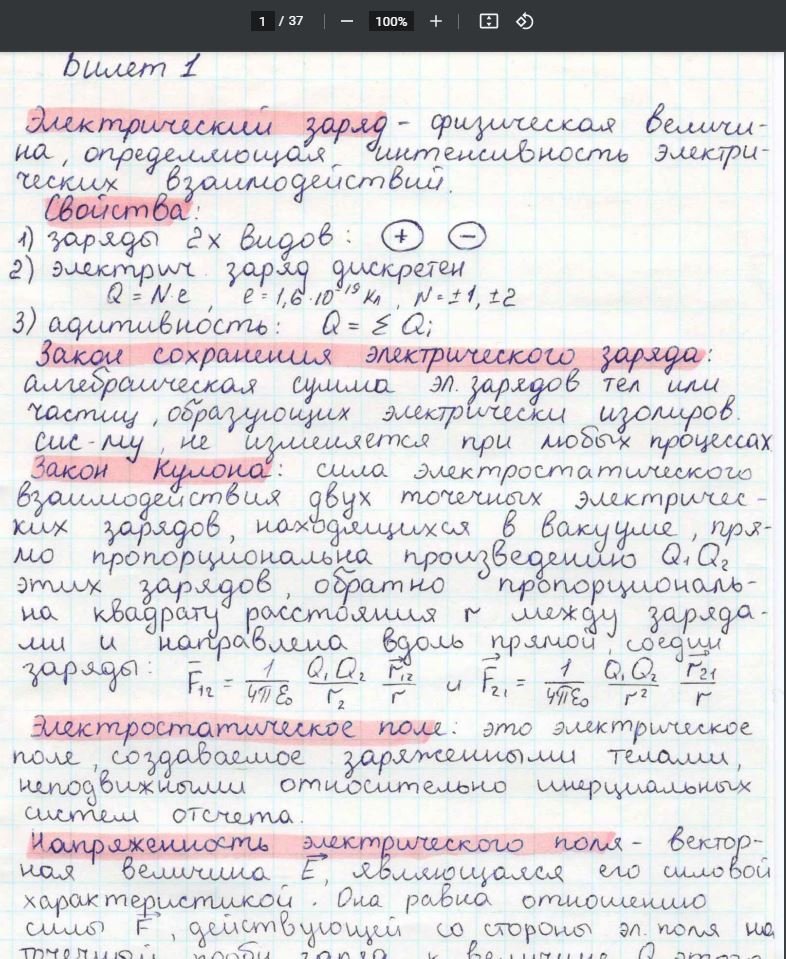 1 / 37 100%
Билет 1
Электрический заряд - физическая величи-
на, определяющая интенсивность электри-
ческих взаимодействий.
Свойства:
1) заряды 2х видов: + −
2) электрич. заряд дискретен
Q = N·e, e = 1,6·10⁻¹⁹ Кл, N = ±1, ±2
3) адитивность: Q = Σ Qᵢ
Закон сохранения электрического заряда:
алгебраическая сумма эл. зарядов тел или
частиц, образующих электрически изолиров.
сис-му, не изменяется при любых процессах
Закон Кулона: сила электростатического
взаимодействия двух точечных электричес-
ких зарядов, находящихся в вакууме, пря-
мо пропорциональна произведению Q₁Q₂
этих зарядов, обратно пропорциональ-
на квадрату расстояния r между заряда-
ми и направлена вдоль прямой, соедин
заряды: F̅₁₂ = 1/4πε₀ Q₁Q₂/r₂ r⃗₁₂/r и F⃗₂₁ = 1/4πε₀ Q₁Q₂/r² r⃗₂₁/r
Электростатическое поле: это электрическое
поле, создаваемое заряженными телами,
неподвижными относительно инерциальных
систем отсчета.
Напряженность электрического поля - вектор-
ная величина E⃗, являющаяся его силовой
характеристикой. Она равна отношению
силы F⃗, действующей со стороны эл. поля на
точечный пробн заряд к величине Q этого